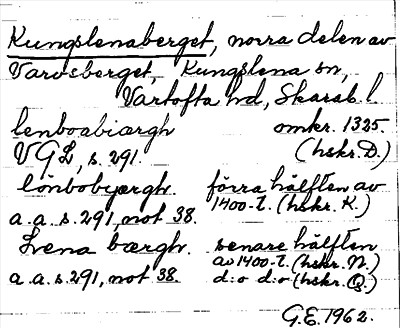 Kungslenaberget, norra delen av
Varvsberget, Kungslena sn,
Vartofta hd, Skarab. l.
lenboabiærgh omkr. 1325.
VGL, s. 291. (hskr. D.)
lönbobyærgh. förra hälften av
a.a.s. 291, not 38. 1400-t. (hskr. K.)
Lvena bærgh. senare hälften
av 1400-t. (hskr. N.)
a.a.s. 291, not 38. d:o d:o (hskr. Q.)
G.E. 1962.